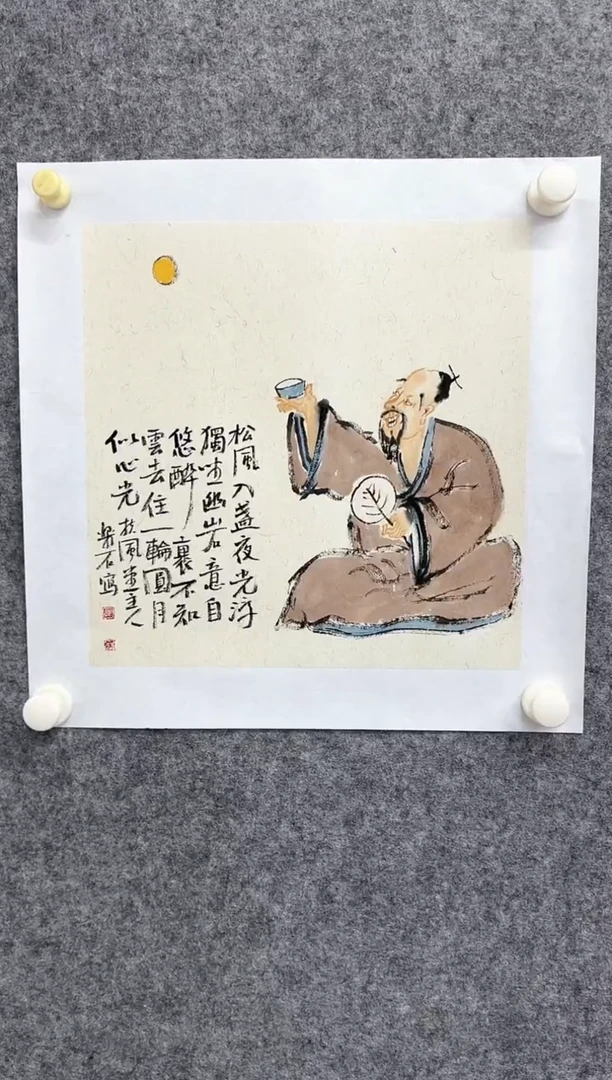 松風入盞夜光浮
獨坐幽岩意自
悠醉裏不知
雲去住一輪圓月
似心光 扶風堂主人
樂石寫